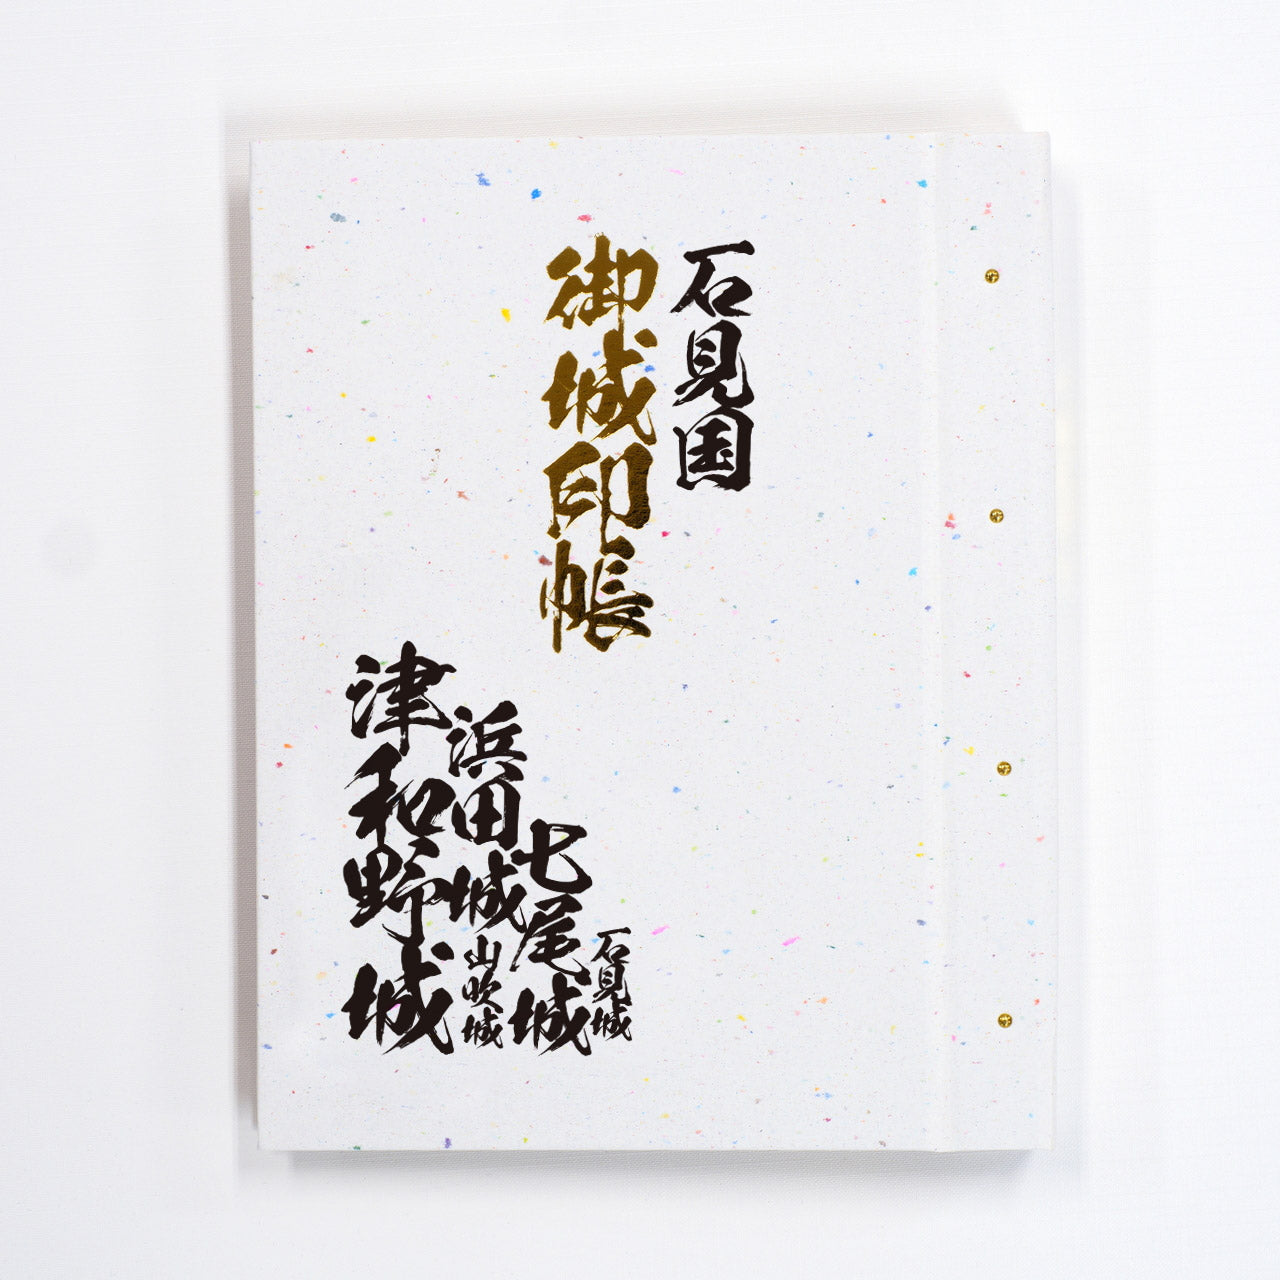 石見国
御城印帳
石見城
七尾城
浜田城
山吹城
津和野城